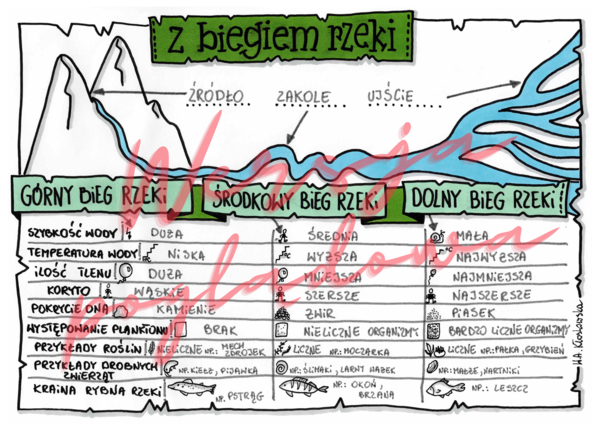 z biegiem rzeki
ŹRÓDŁO ZAKOLE UJŚCIE
GÓRNY BIEG RZEKI ŚRODKOWY BIEG RZEKI DOLNY BIEG RZEKI!
SZYBKOŚĆ WODY DUŻA ŚREDNIA MAŁA
TEMPERATURA WODY NISKA WYŻSZA NAJWYŻSZA
ILOŚĆ TLENU DUŻA MNIEJSZA NAJMNIEJSZA
KORYTO WĄSKIE SZERSZE NAJSZERSZE
POKRYCIE DNA KAMIENIE ŻWIR PIASEK
WYSTĘPOWANIE PLANKTONU BRAK NIELICZNE ORGANIZMY BARDZO LICZNE ORGANIZMY
PRZYKŁADY ROŚLIN NIELICZNE NP.: MECH ZDROJEK LICZNE NP.: MOCZARKA LICZNE NP.: PAŁKA, GRZYBIEŃ
PRZYKŁADY DROBNYCH ZWIERZĄT NP.: KIEŁŻ, PIJAWKA NP.: ŚLIMAKI, LARWY WAŻEK NP.: MAŁŻE, NARTNIKI
KRAINA RYBNA RZEKI NP. PSTRĄG NP.: OKOŃ, BRZANA NP.: LESZCZ
Wersja
poglądowa